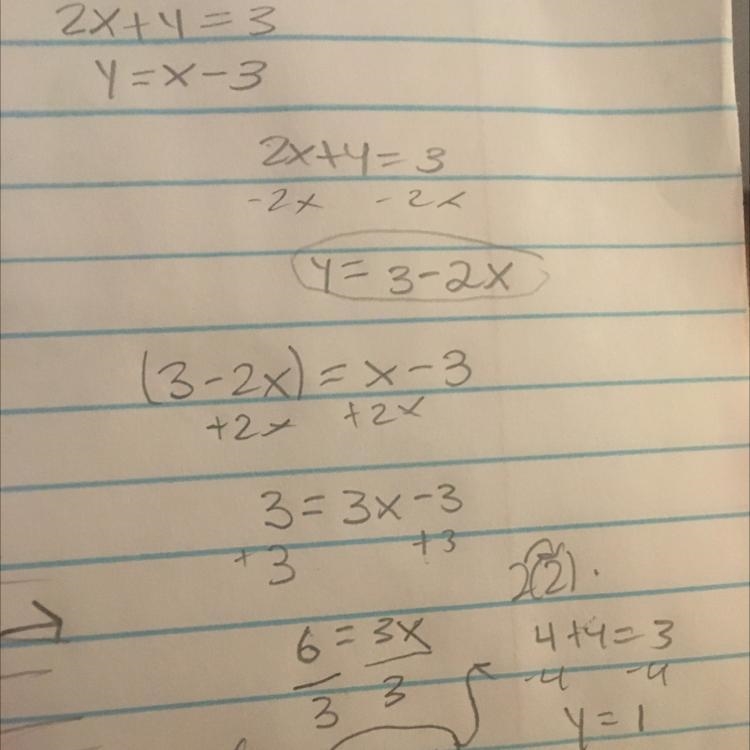 2x+y=3
y=x-3
2x+y=3
-2x -2x
y=3-2x
(3-2x)=x-3
+2x +2x
3=3x-3
+3 +3
6=3x
3 3
2(2).
4+y=3
-4 -4
y=1